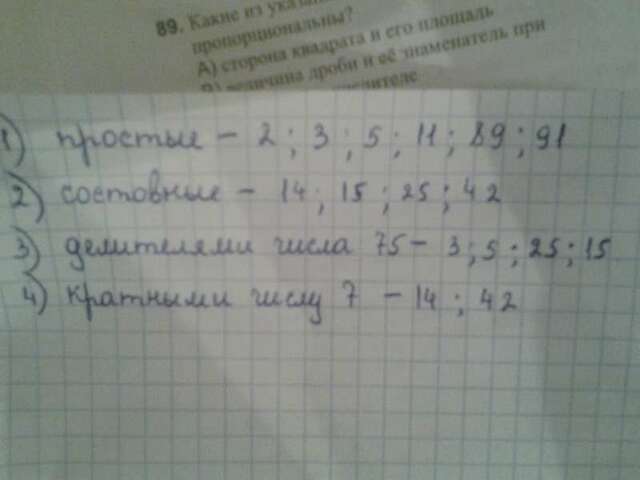 89. Какие из указан
пропорциональны?
А) сторона квадрата и его площадь
величина дроби и её знаменатель при
1) простые - 2 ; 3 ; 5 ; 11 ; 89 ; 91
2) состовные - 14 ; 15 ; 25 ; 42
3) делителями числа 75 - 3 ; 5 ; 25 ; 15
4) кратными числу 7 - 14 ; 42